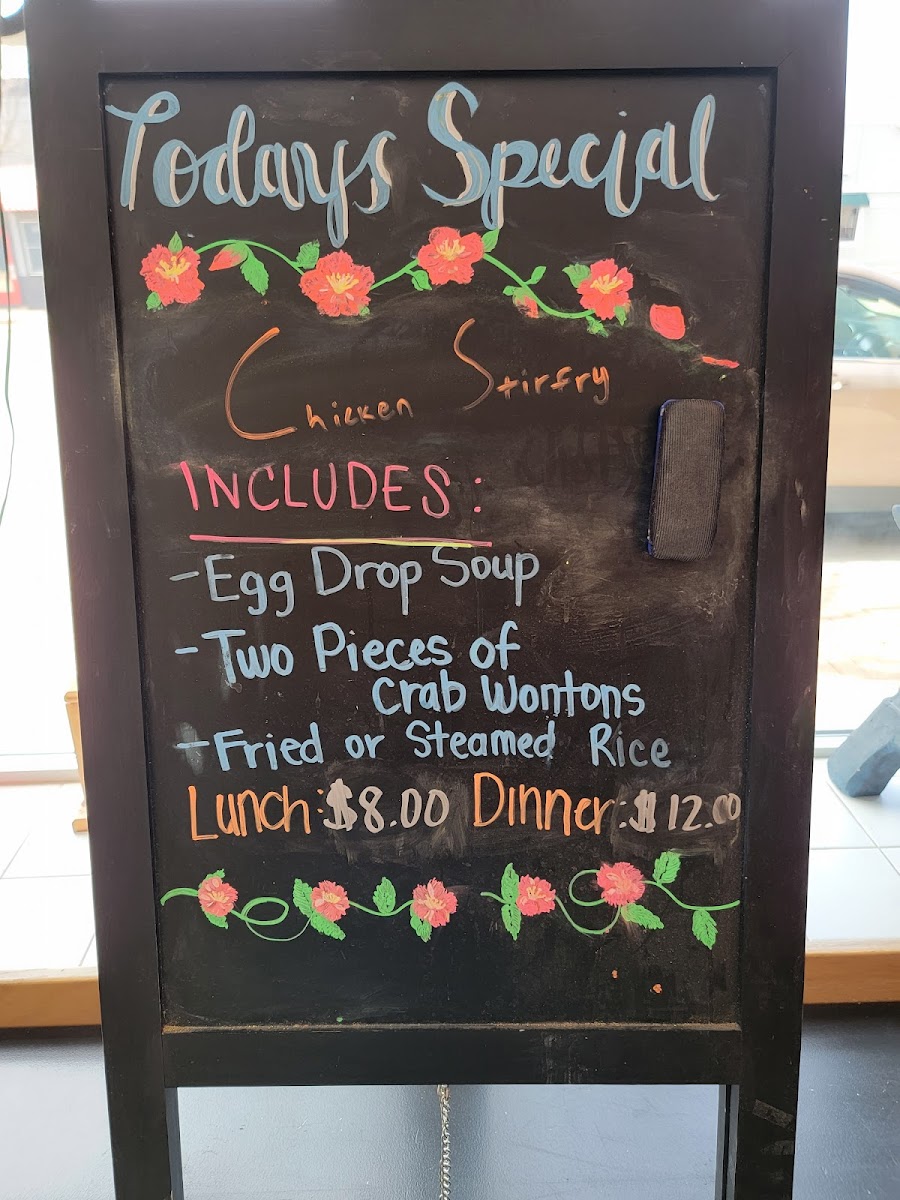 Todays Special
Chicken Stirfry
INCLUDES:
-Egg Drop Soup
-Two Pieces of
Crab Wontons
-Fried or Steamed Rice
Lunch:$8.00 Dinner:$12.00